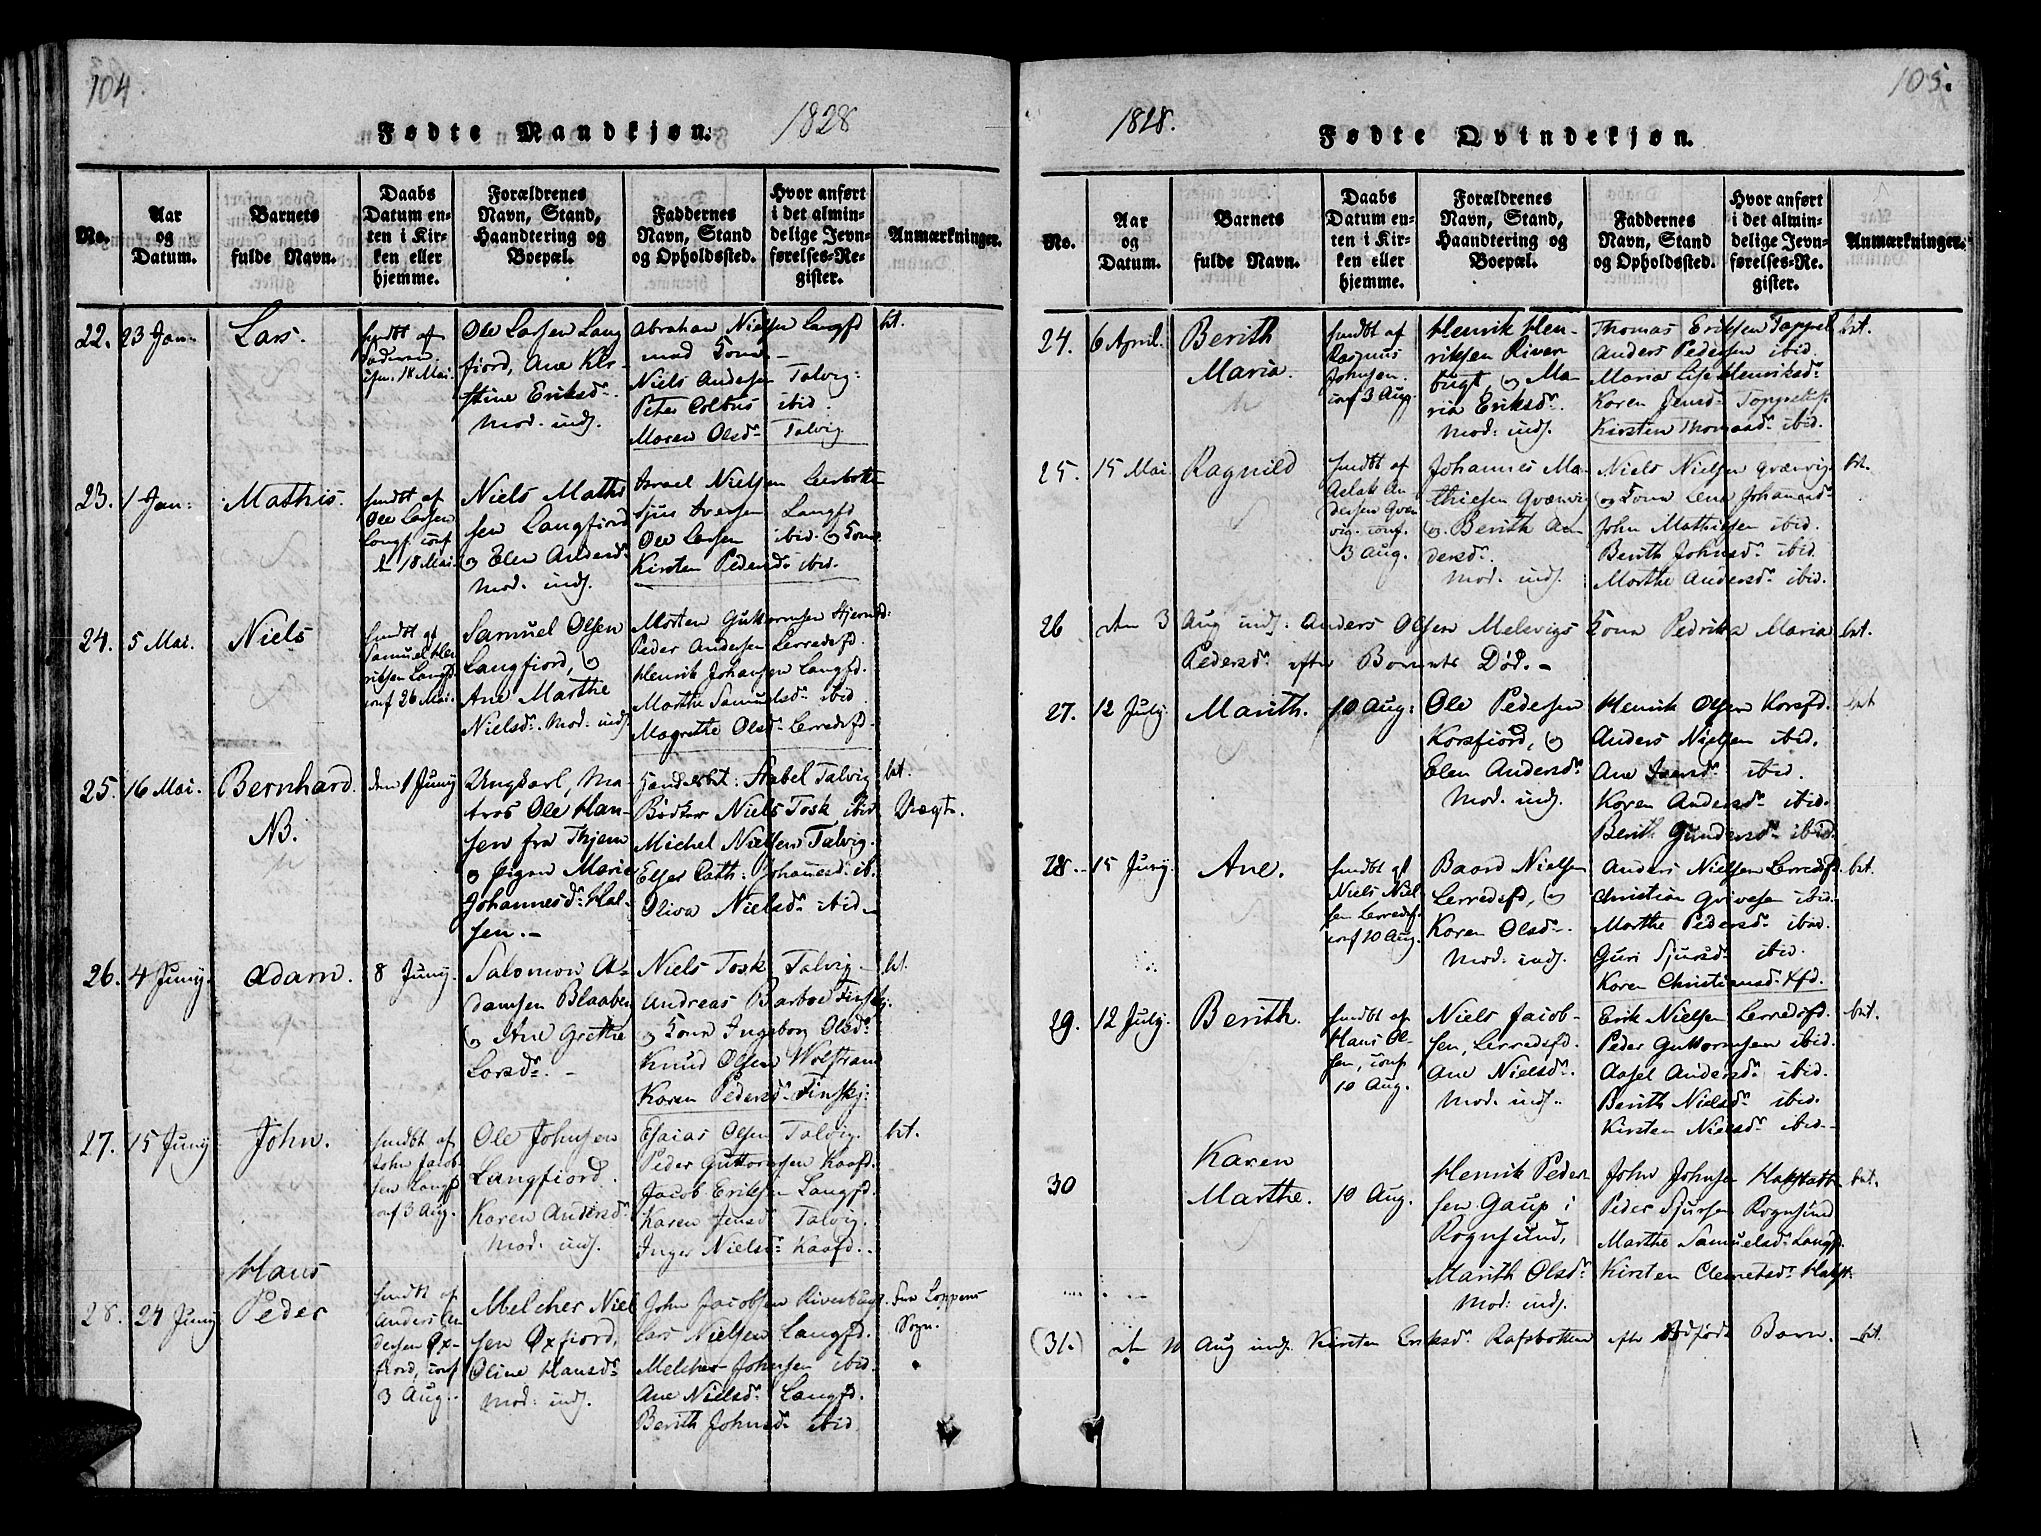 104.
Fødte Mandkjøn. 1828
No.
Aar
og
Datum.
Barnets
fulde Navn.
Daabs
Datum en-
ten i Kir-
ken eller
hjemme.
Forældrenes
Navn, Stand,
Haandtering og
Boepæl.
Faddernes
Navn, Stand
og Opholdssted.
Hvor anført
i det almin-
delige Jevn-
førelses-Re-
gister.
Anmærkninger.
22. 23 Jan.
Lars.
hmdbt af
conf. 18 Mai.
Ole Larsen Lang
fiord, Ane Kir-
stine Eriksd.
Mod. indj.
Abraham Nielsen Langfd
med Kone
Niels Andersen Talvig.
Peter Colbus ibid.
Maren Olsdr Talvig
bt.
23. 1 Jan:
Mathis.
hmdbt af
Ole Larsen
Langf. conf
d. 18 Mai
Niels Mathi
sen Langfiord
og Elen Andersdr
Mod. indj.
Israel Nielsen Leerbotte
Sjur Iversen Langfd
Ole Larsen ibid. og Kone
Kirsten Pedersdr ibid.
24. 5 Mai.
Niels
hmdbt af
Samuel Hen
riksen Langfd
conf 26 Mai.
Samuel Olsen
Langfiord, og
Ane Marthe
Nielsdr. Mod. indj.
Morten Guttormsen
Peder Andersen Lerredsfd.
Henrik Johansen Langfd.
Marthe Samuelsdr ibid
Magrethe Olsdr Lerredsfd.
25. 16 Mai.
Bernhard.
NB.
den 1 Junij
Ungkarl, Ma-
tros Ole Han-
sen fra Thjem
og Pigen Marie
Johannesdr. Hal-
sen.-
Handelsbet: Stabel Talvig
Bødker Niels Tosk, ibid
Michel Nielsen Talvig.
Elser Cath: Johannesd. ib.
Oliva Nielsdr. ibid.
bt.
Uægte.
26. 4 Junij.
Adam.
8 Junij.
Salomon A-
damsen Blaaben
og Ane Grethe
Larsdr. -
Niels Tosk Talvig
Andreas Barboe Finskj.
og Kone Ingeborg Olsdr
Knud Olsen Wolstrand
Karen Pedersd. Finskj:
bt.
27. 15 Junij
John.
hmdbt af
John Jacob
sen Langf
conf 3 Aug.
Ole Johnsen
Langfiord.
Karen Andersdr.
Mod. indj.
Esaias Olsen Talvig.
Peder Guttormsen Kaafd.
Jacob Eriksen Langfd.
Karen Jensd Talvig.
Inger Nielsdr. Kaafd.
bt.
28. 24 Junij
Hans
Peder
hmdbt af
Anders An
dersen Øx-
fiord, conf
3 Aug..
Melcher Niel
sen Øxfiord,
Oline Hansdr
Mod: indj.
John Jacobsen Riverbugt.
Lars Nielsen Langfd.
Melcher Johnsen ibid.
Ane Nielsdr. Langfd.
Berith Johnsdr. ibid.
Fra Loppens
Sogn.
105.
1828. Fødte Qvindekjøn.
No.
Aar
og
Datum.
Barnets
fulde Navn.
Daabs
Datum en-
ten i Kir-
ken eller
hjemme.
Forældrenes
Navn, Stand,
Haandtering og
Boepæl.
Faddernes
Navn, Stand
og Opholdssted.
Hvor anført
i det almin-
delige Jevn-
førelses-Re-
gister.
Anmærkninger.
24. 6 April.
Berith
Maria.
hmdbt af
Rasmus
Johnsen.
conf 3 Aug
Henrik Hen-
riksen River
bugt, og Ma-
ria Eriksdr.
Mod: indj.
Thomas Eriksen Toppel
Anders Pedersen ibid
Maria Lise Henriksdr.
Karen Jensd. Toppeluft
Kirsten Thomasdr. ibid.
bt.
25. 15 Mai
Ragnild
hmdbt af
Aslak An
dersen Qvæn
vig. conf.
3 Aug.
Johannes Ma-
thiesen Qvænvig
og Berith An
dersdr.
Mod. indj.
Niels Nielsen Qvænvig.
og Kone Lene Johansd.
John Mathiesen ibid.
Berith Johnsdr ibid.
Marthe Andersdr ibid.
bt.
26 den 3 Aug indj: Anders Olsen Melsvigs Kone Pedrikka Maria
Pedersdr. efter Barnets Død.-
bt.
27. 12 July.
Marith.
10 Aug:
Ole Pedersen
Korsfiord, og
Elen Andersdr.
Mod. indj.
Henrik Olsen Korsfd.
Anders Nielsen ibid.
Ane Iversdr. ibid.
Karen Andersdr. ibid.
Berith Gundersdr. ibid.
bt
28. 15 Junij.
Ane.
hmdbt af
Niels Niel
sen Lerredsf.
conf 10 Aug.
Baard Nielsen
Lerredsfd, og
Karen Olsdr.
Mod. indj.
Anders Nielsen Lerredsfd
Christian Qvivesen ibid.
Marthe Pedersdr. ibid.
Guri Sjursdr ibid.
Karen Christiansd. Kfd.
bt.
29. 12 July.
Berith.
hmdbt af
Hans Ol-
sen, conf
10 Aug.
Niels Jacob-
sen, Lerredsfd.
Ane Nielsdr.
Mod. indj.
Erik Nielsen Lerredsfd.
Peder Guttormsen ibid.
Aasel Andersdr ibid.
Berith Nielsdr ibid.
Kirsten Nielsdr ibid.
bt.
30
Karen
Marthe.
10 Aug.
Henrik Peder
sen Gaup i
Rognsund,
Marith Olsdr
Mod: indj.
John Johnsen
Peder Sjursen Rognsund
Marthe Samuelsdr. Langfd.
Kirsten Clemetsdr.
bt.
(31.) den 10 Aug indj. Kirsten Eriksdr. Rafsbotten efter Dødfødt Barn. bt.